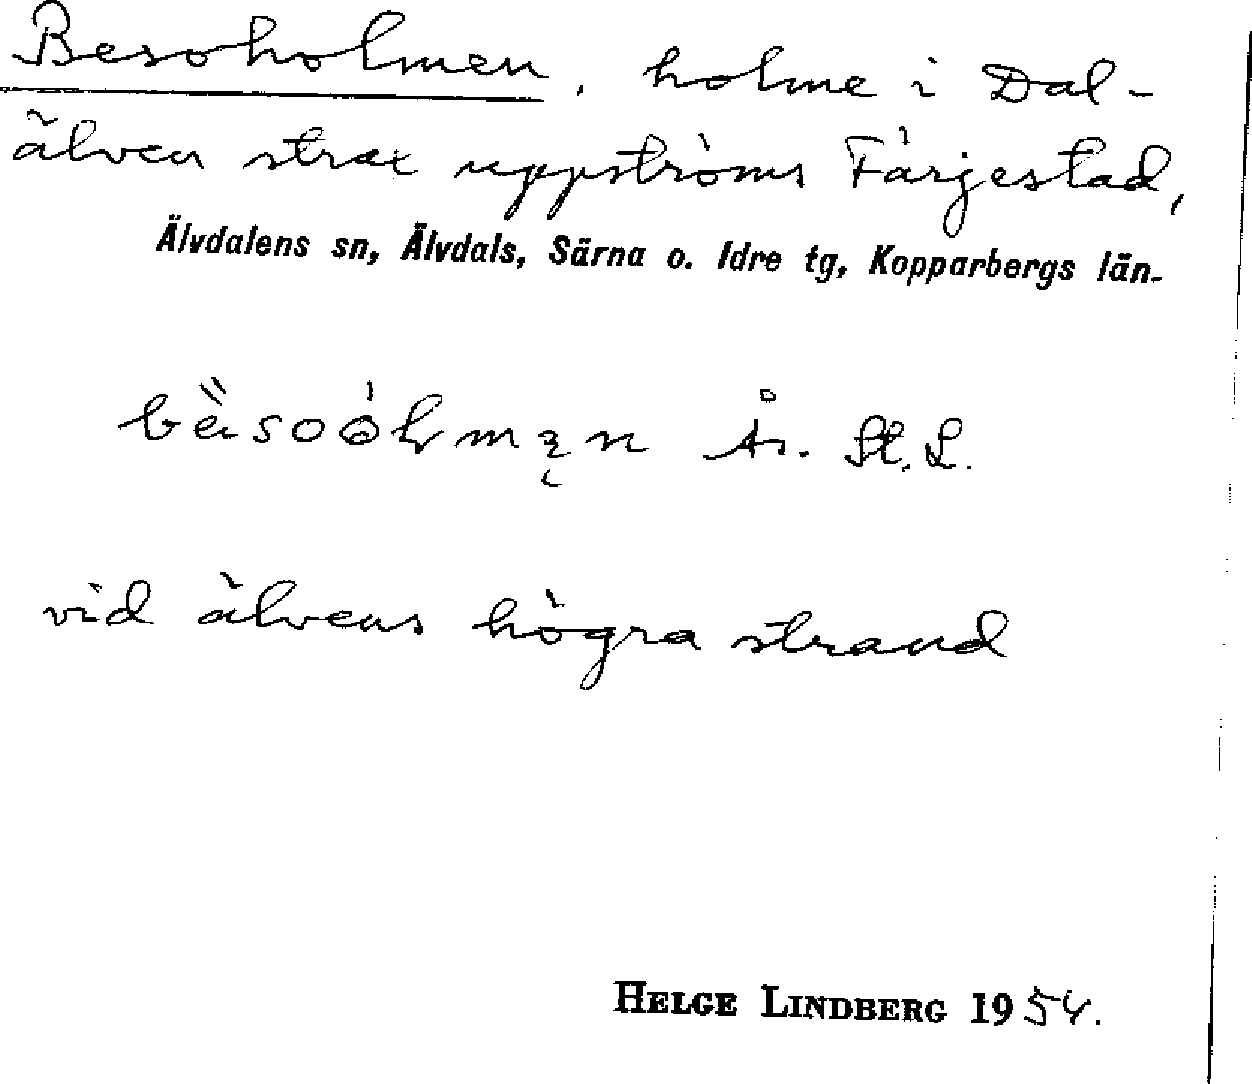 Besoholmen, holme i Dal-
älven strax uppströms Färjestad,
Älvdalens sn, Älvdals, Särna o. Idre tg, Kopparbergs län.
Åsn. St. L.
vid älvens högra strand
HELGE LINDBERG 1954.